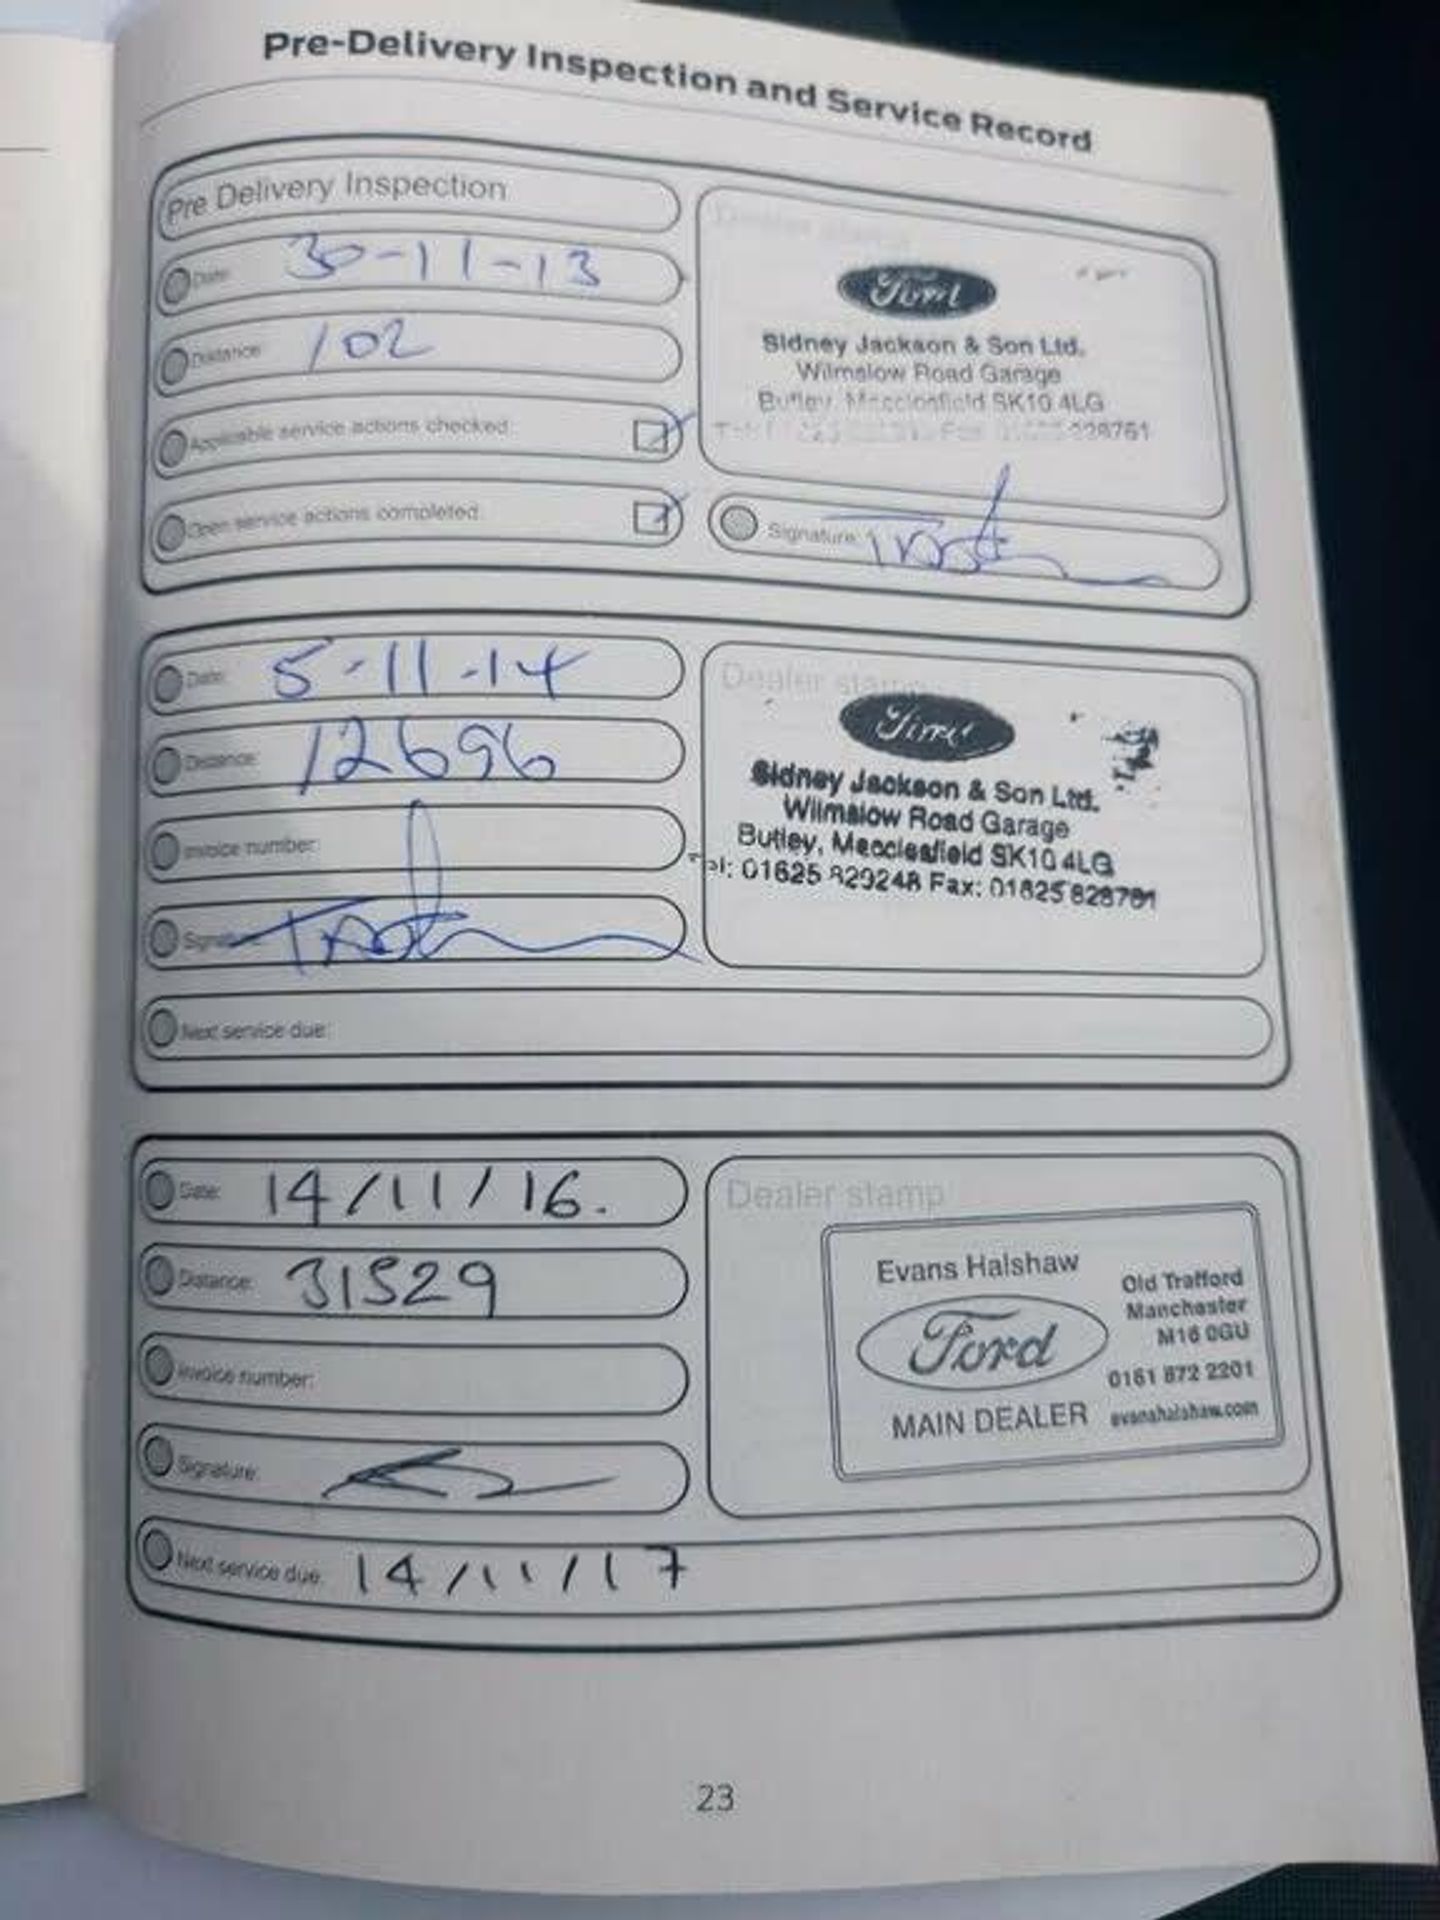 Pre-Delivery Inspection and Service Record
Pre Delivery Inspection
Date: 30-11-13
Distance: 102
Applicable service actions checked:
Open service actions completed:
Dealer stamp
Ford
Sidney Jackson & Son Ltd.
Wilmslow Road Garage
Butley, Macclesfield SK10 4LG
Signature:
Date: 5-11-14
Distance: 12696
Invoice number:
Signature:
Dealer stamp
Ford
Sidney Jackson & Son Ltd.
Wilmslow Road Garage
Butley, Macclesfield SK10 4LG
Tel: 01625 829248 Fax: 01625 828761
Next service due:
Date: 14/11/16.
Distance: 31529
Invoice number:
Signature:
Dealer stamp
Evans Halshaw
Ford
MAIN DEALER
Old Trafford
Manchester
M16 0GU
0161 872 2201
evanshalshaw.com
Next service due: 14/11/17
23